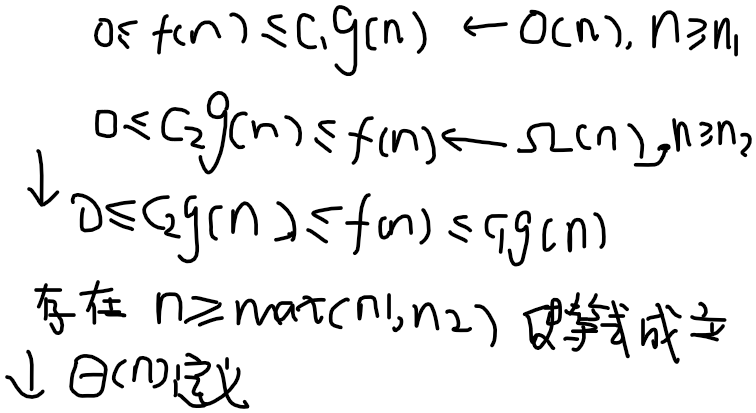 0≤f(n)≤C₁g(n) ← O(n), n≥n₁
0≤C₂g(n)≤f(n) ← Ω(n), n≥n₂
↓ 0≤C₂g(n)≤f(n)≤C₁g(n)
存在 n≥max(n1,n2) 使等式成立
↓ Θ(n)定义